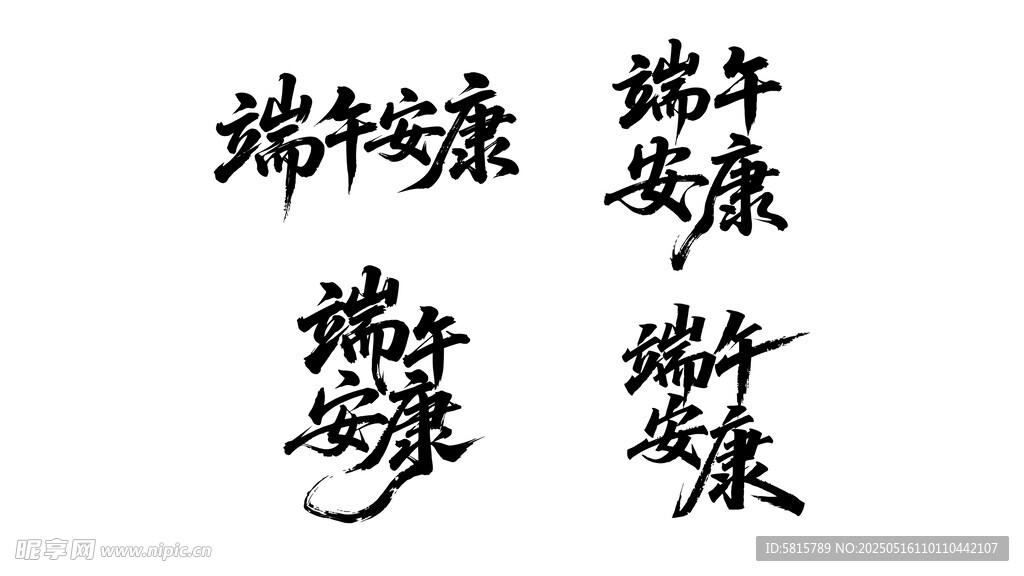 端午安康
端午
安康
端午
安康
端午
安康
昵享网 www.nipic.cn
ID:5815789 NO:20250516110110442107